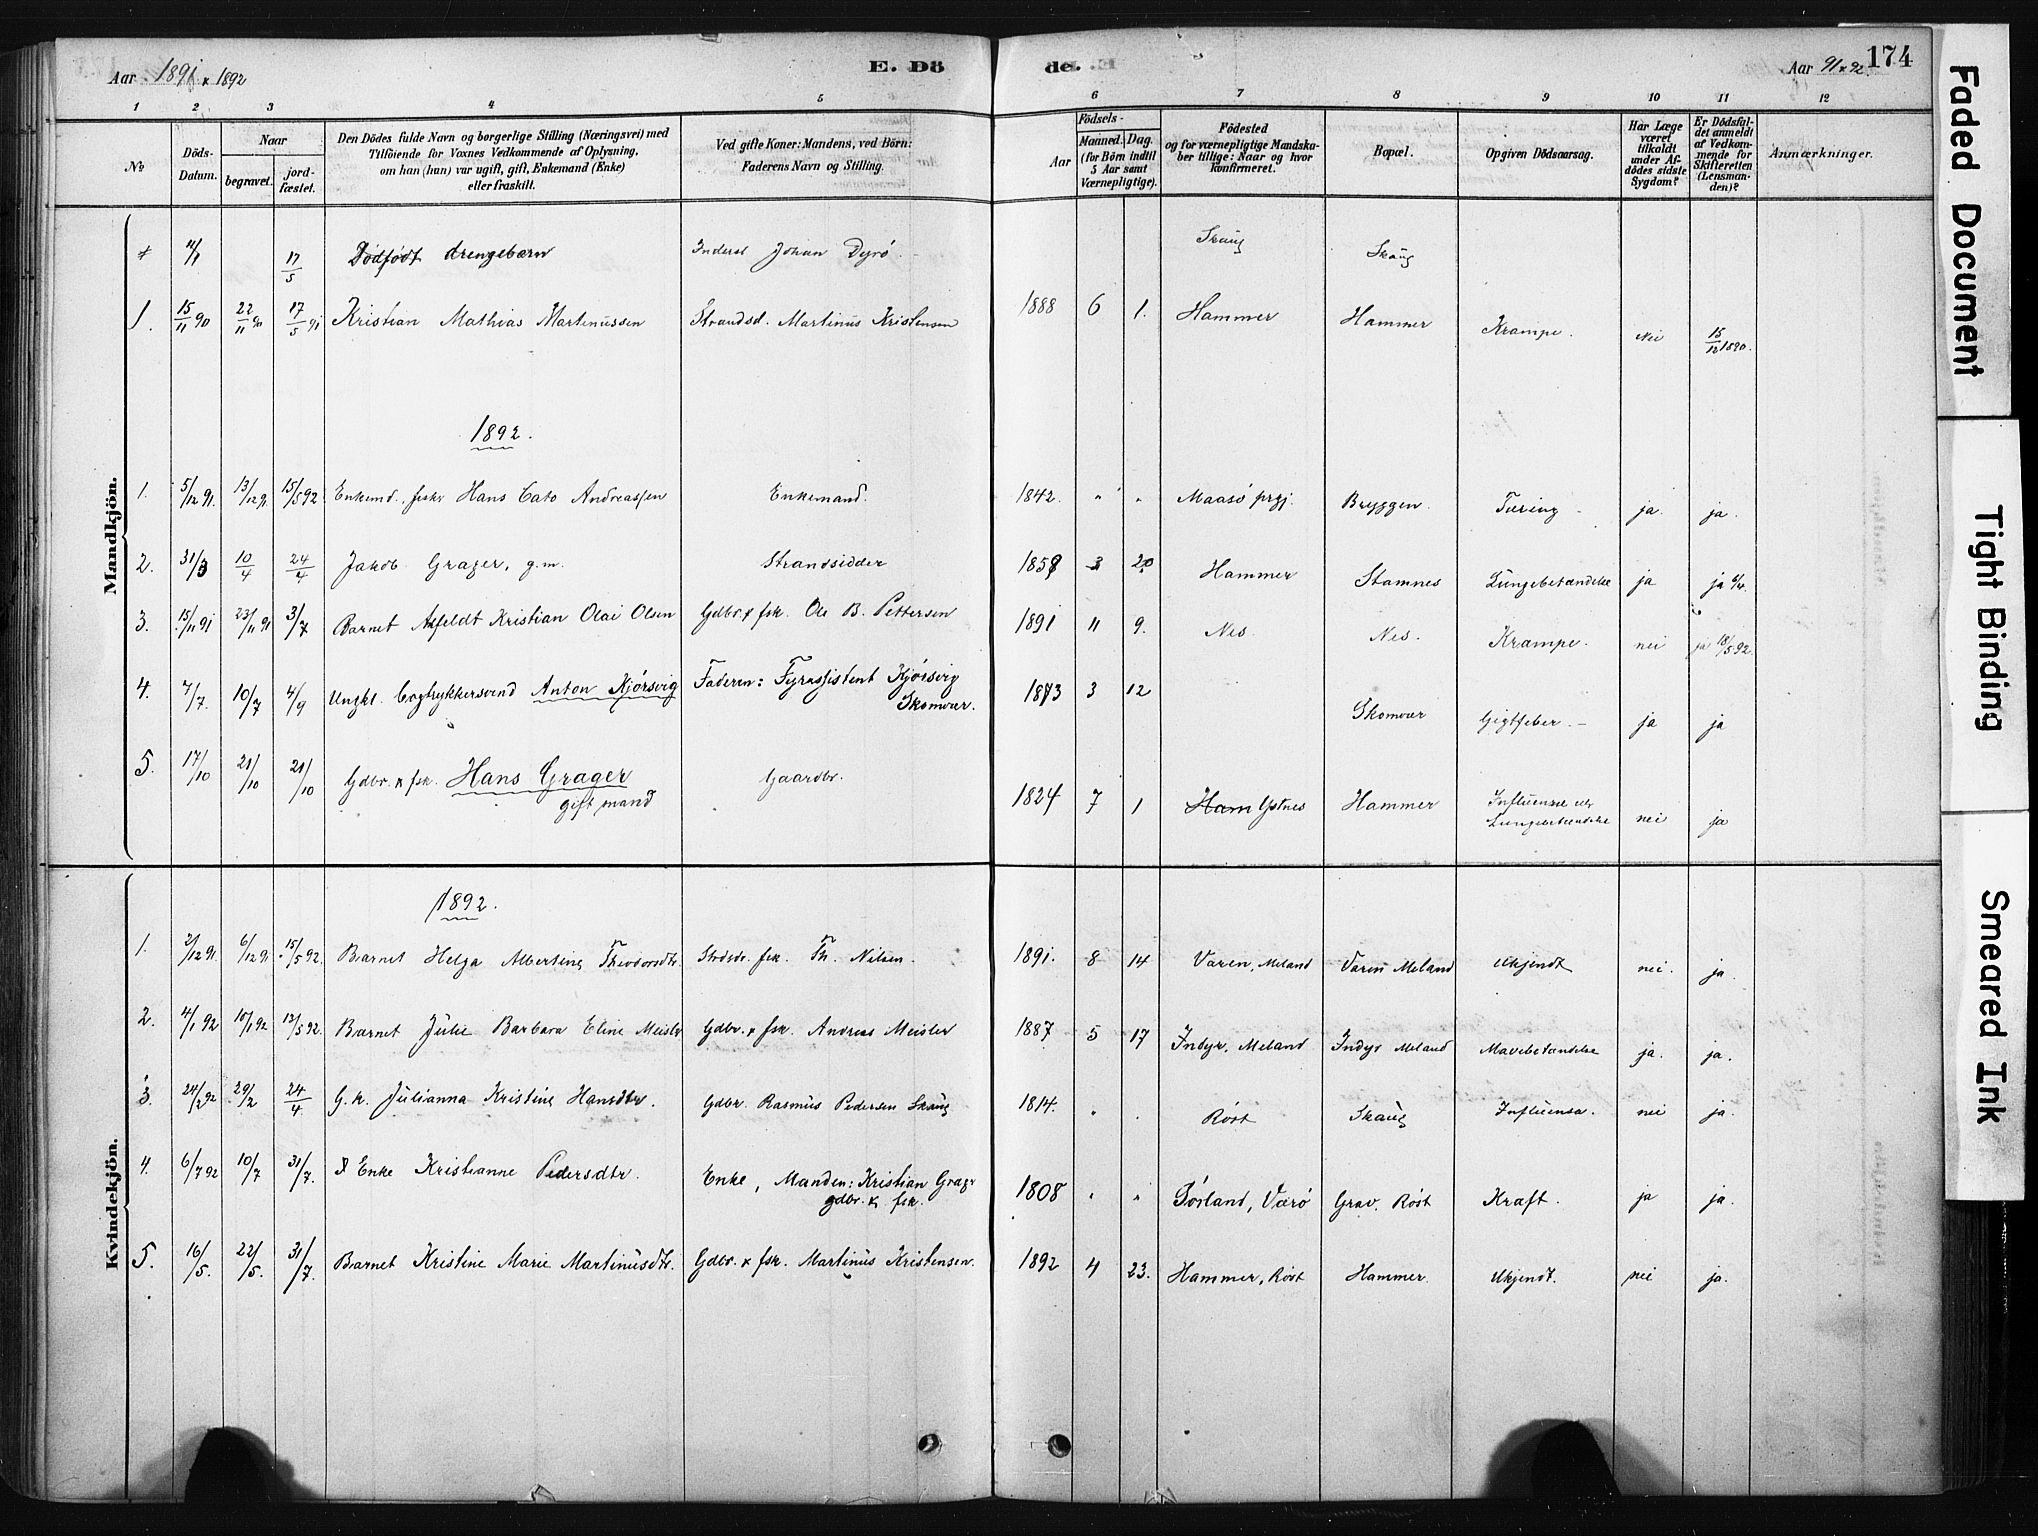 Aar 1891 & 1892
E. Dö
de.
Aar 91 & 92
174
1 2 3 4 5 6 7 8 9 10 11 12
No
Döds-Datum.
Naar
begravet.
jord-fæstet.
Den Dödes fulde Navn og borgerlige Stilling (Næringsvei) med
Tilföiende for Voxnes Vedkommende af Oplysning,
om han (hun) var ugift, gift, Enkemand (Enke)
eller fraskilt.
Ved gifte Koner: Mandens, ved Börn:
Faderens Navn og Stilling.
Födsels-
Aar
Maaned. Dag.
(for Börn indtil
5 Aar samt
Værnepligtige).
Födested
og for værnepligtige Mandska-
ber tillige: Naar og hvor
konfirmeret.
Bopæl.
Opgiven Dödsaarsag.
Har Læge
været
tilkaldt
under Af-
dödes sidste
Sygdom?
Er Dödsfal-
det anmeldt
af Vedkom-
mende for
Skifteretten
(Lensman-
den)?
Anmærkninger.
Mandkjön.
4/1 17/5 Dödfödt drengebarn Inderst Johan Dyrö Skaug Skaug
1. 15/11 90 22/11 90 17/5 91 Kristian Mathias Martinussen Strandsd. Martinus Kristensen 1888 6 1. Hammer Hammer Krampe. Nei 15/12 1890.
1892.
1. 5/12 91. 13/12 91. 15/5 92 Enkemd. fisker Hans Cato Andreassen Enkemand. 1842. " " Maasö prgj. Bryggen. Tæring - ja. ja.
2. 31/3 10/4 24/4 Jakob Grager, g.m. Strandsidder 1859 3 20 Hammer Stamnes Lungebetændelse ja ja 6/4.
3. 15/11 91 23/11 91 3/7 Barnet Alfeldt Kristian Olai Olsen Gdbr. & fsk. Ole B. Pettersen 1891 11 9. Nes. Nes. Krampe. nei ja 18/5 92.
4. 7/7. 10/7 4/9 Ungkl. bogtrykkersvend Anton Kjörsvig Faderen: Fyrassistent Kjörsvig
Skomvær. 1873 3 12 Skomvær Gigtfeber. - ja ja
5. 17/10 21/10 21/10 Gdbr. & fsk. Hans Grager
gift mand Gaardbr. 1824 7 1 Ham Ystnes Hammer Influensa eller
Lungebetændelse nei ja
Kvindekjön.
1892.
1. 2/12 91. 6/12 91 15/5 92. Barnet Helga Albertine Theodorsdtr. Strdsdr. fsk. Th. Nilsen. 1891. 8 14 Varen, Meland Varen Meland Ukjendt nei. ja.
2. 4/1 92 10/1 92 13/5 92. Barnet Julie Barbara Eline Meisler Gdbr. & fsk. Andreas Meisler 1887 5 17 Indyr, Meland Indyr Meland Mavebetændelse ja. ja.
3. 24/2 92 29/2 24/4 G.k. Julianna Kristine Hansdtr. Gdbr. Rasmus Pedersen Skaug 1814. " . Röst Skaug Influensa. nei ja.
4. 6/7 92 10/7 31/7. Enke Kristianne Pedersdtr. Enke, Manden: Kristian Grager
gdbr. & fsk. 1808 " " Sörland, Værö Grav. Röst Kraft. ja ja.
5. 16/5. 22/5. 31/7. Barnet Kristine Marie Martinusdtr. Gdbr. & fsk. Martinus Kristensen. 1892 4 23. Hammer, Röst Hammer. Ukjendt. nei ja.
Faded Document
Tight Binding
Smeared Ink